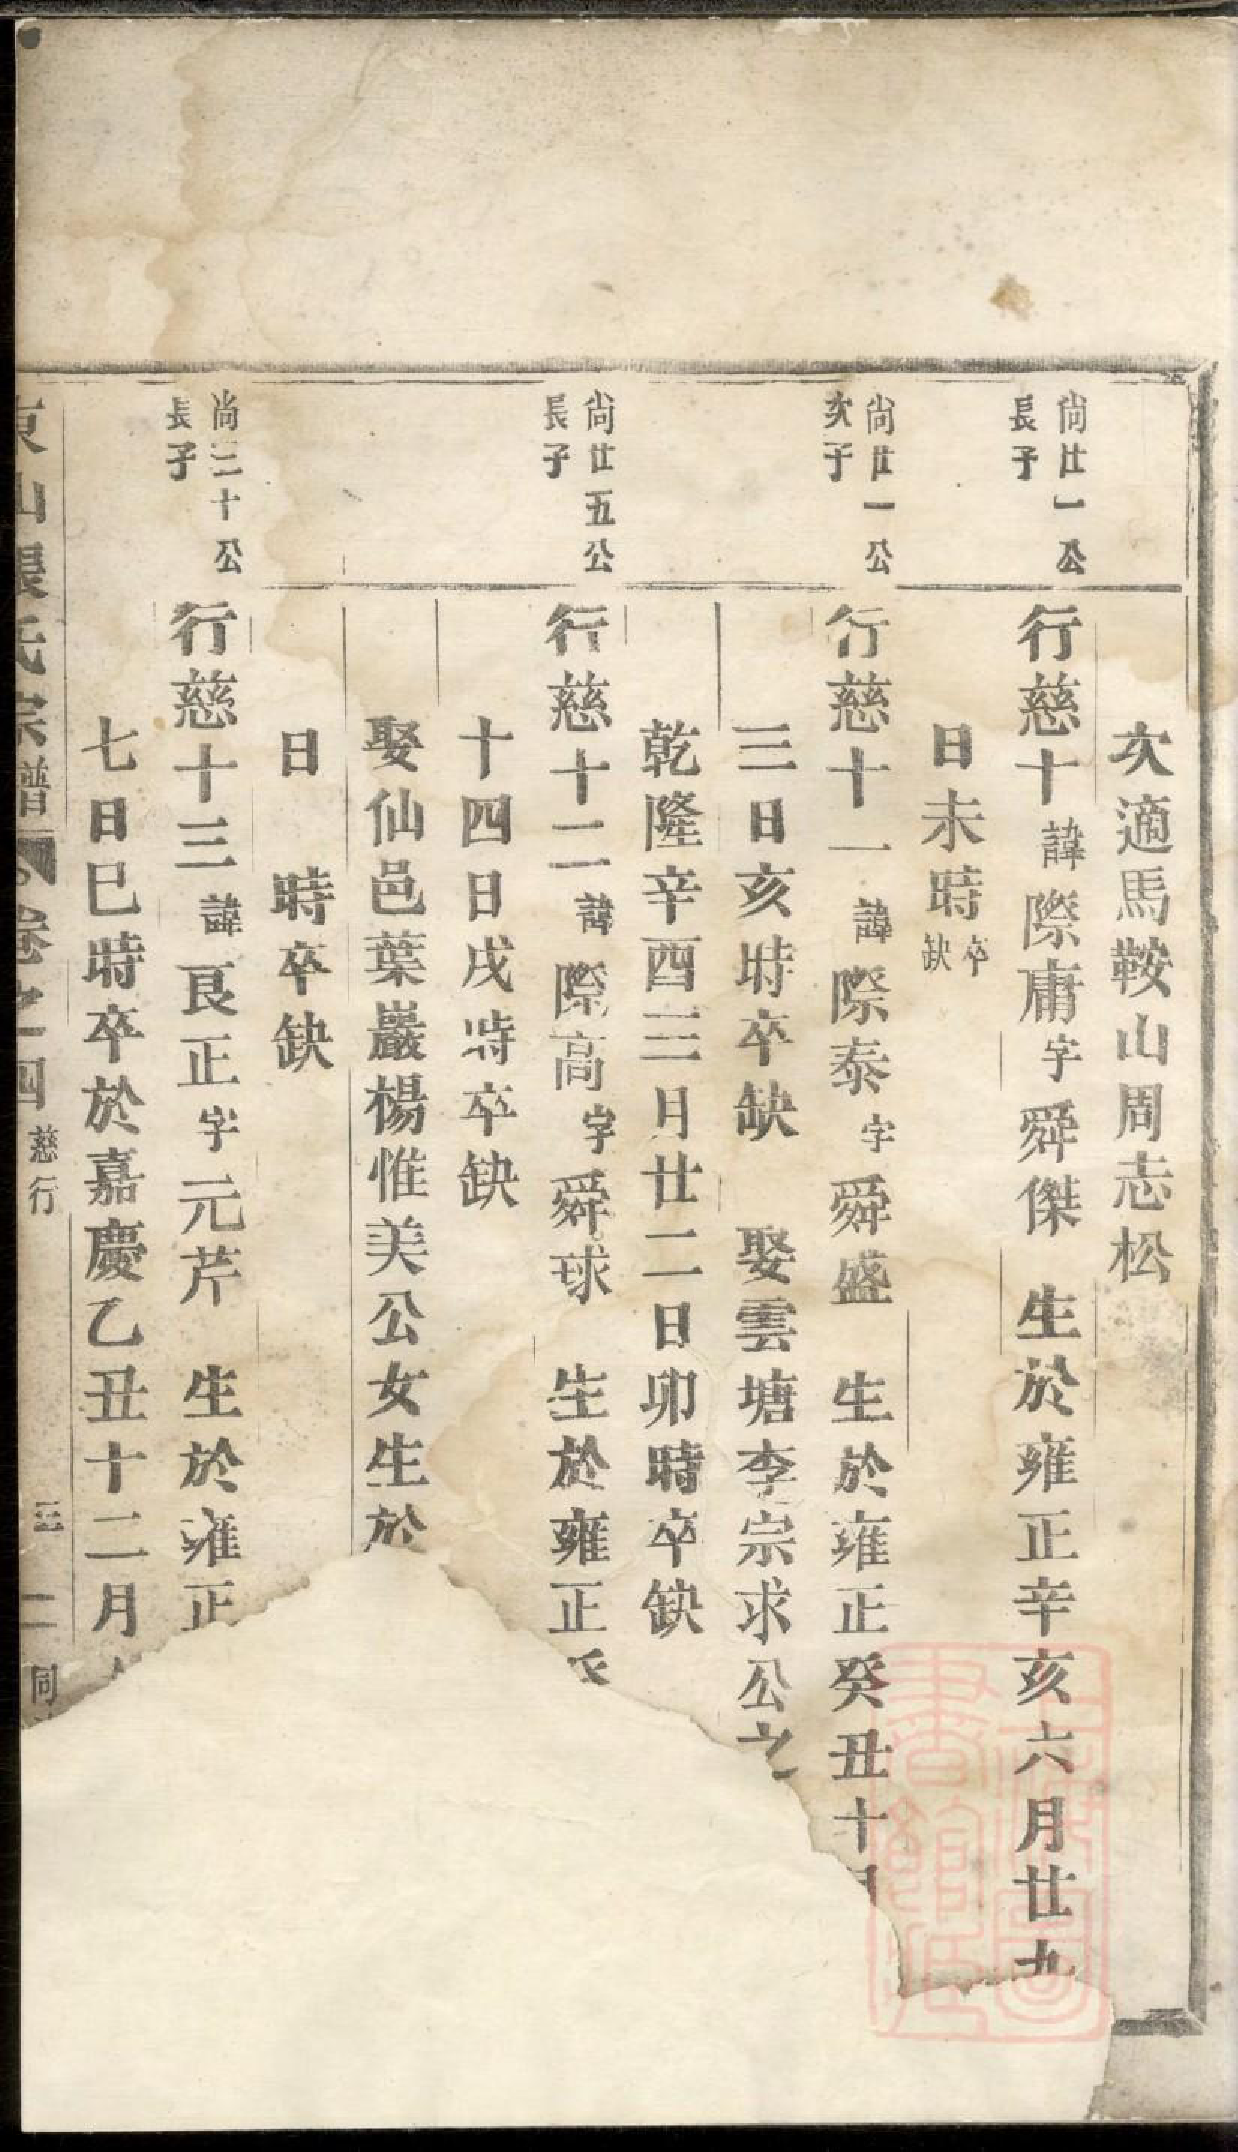 次適馬鞍山周志松
尚廿一公
長子
行慈十諱際庸字舜傑 生於雍正辛亥六月廿九
日未時卒缺
尚廿一公
次子
行慈十一諱際泰字舜盛 生於雍正癸丑十月
三日亥時卒缺 娶雲塘李宗求公之
乾隆辛酉三月廿二日卯時卒缺
尚廿五公
長子
行慈十二諱際高字舜球 生於雍正
十四日戌時卒缺
娶仙邑葉巖楊惟美公女生於
日 時卒缺
尚三十公
長子
行慈十三諱良正字元芹 生於雍正
七日巳時卒於嘉慶乙丑十二月
東山張氏宗譜 卷之四 慈行 三 二 同